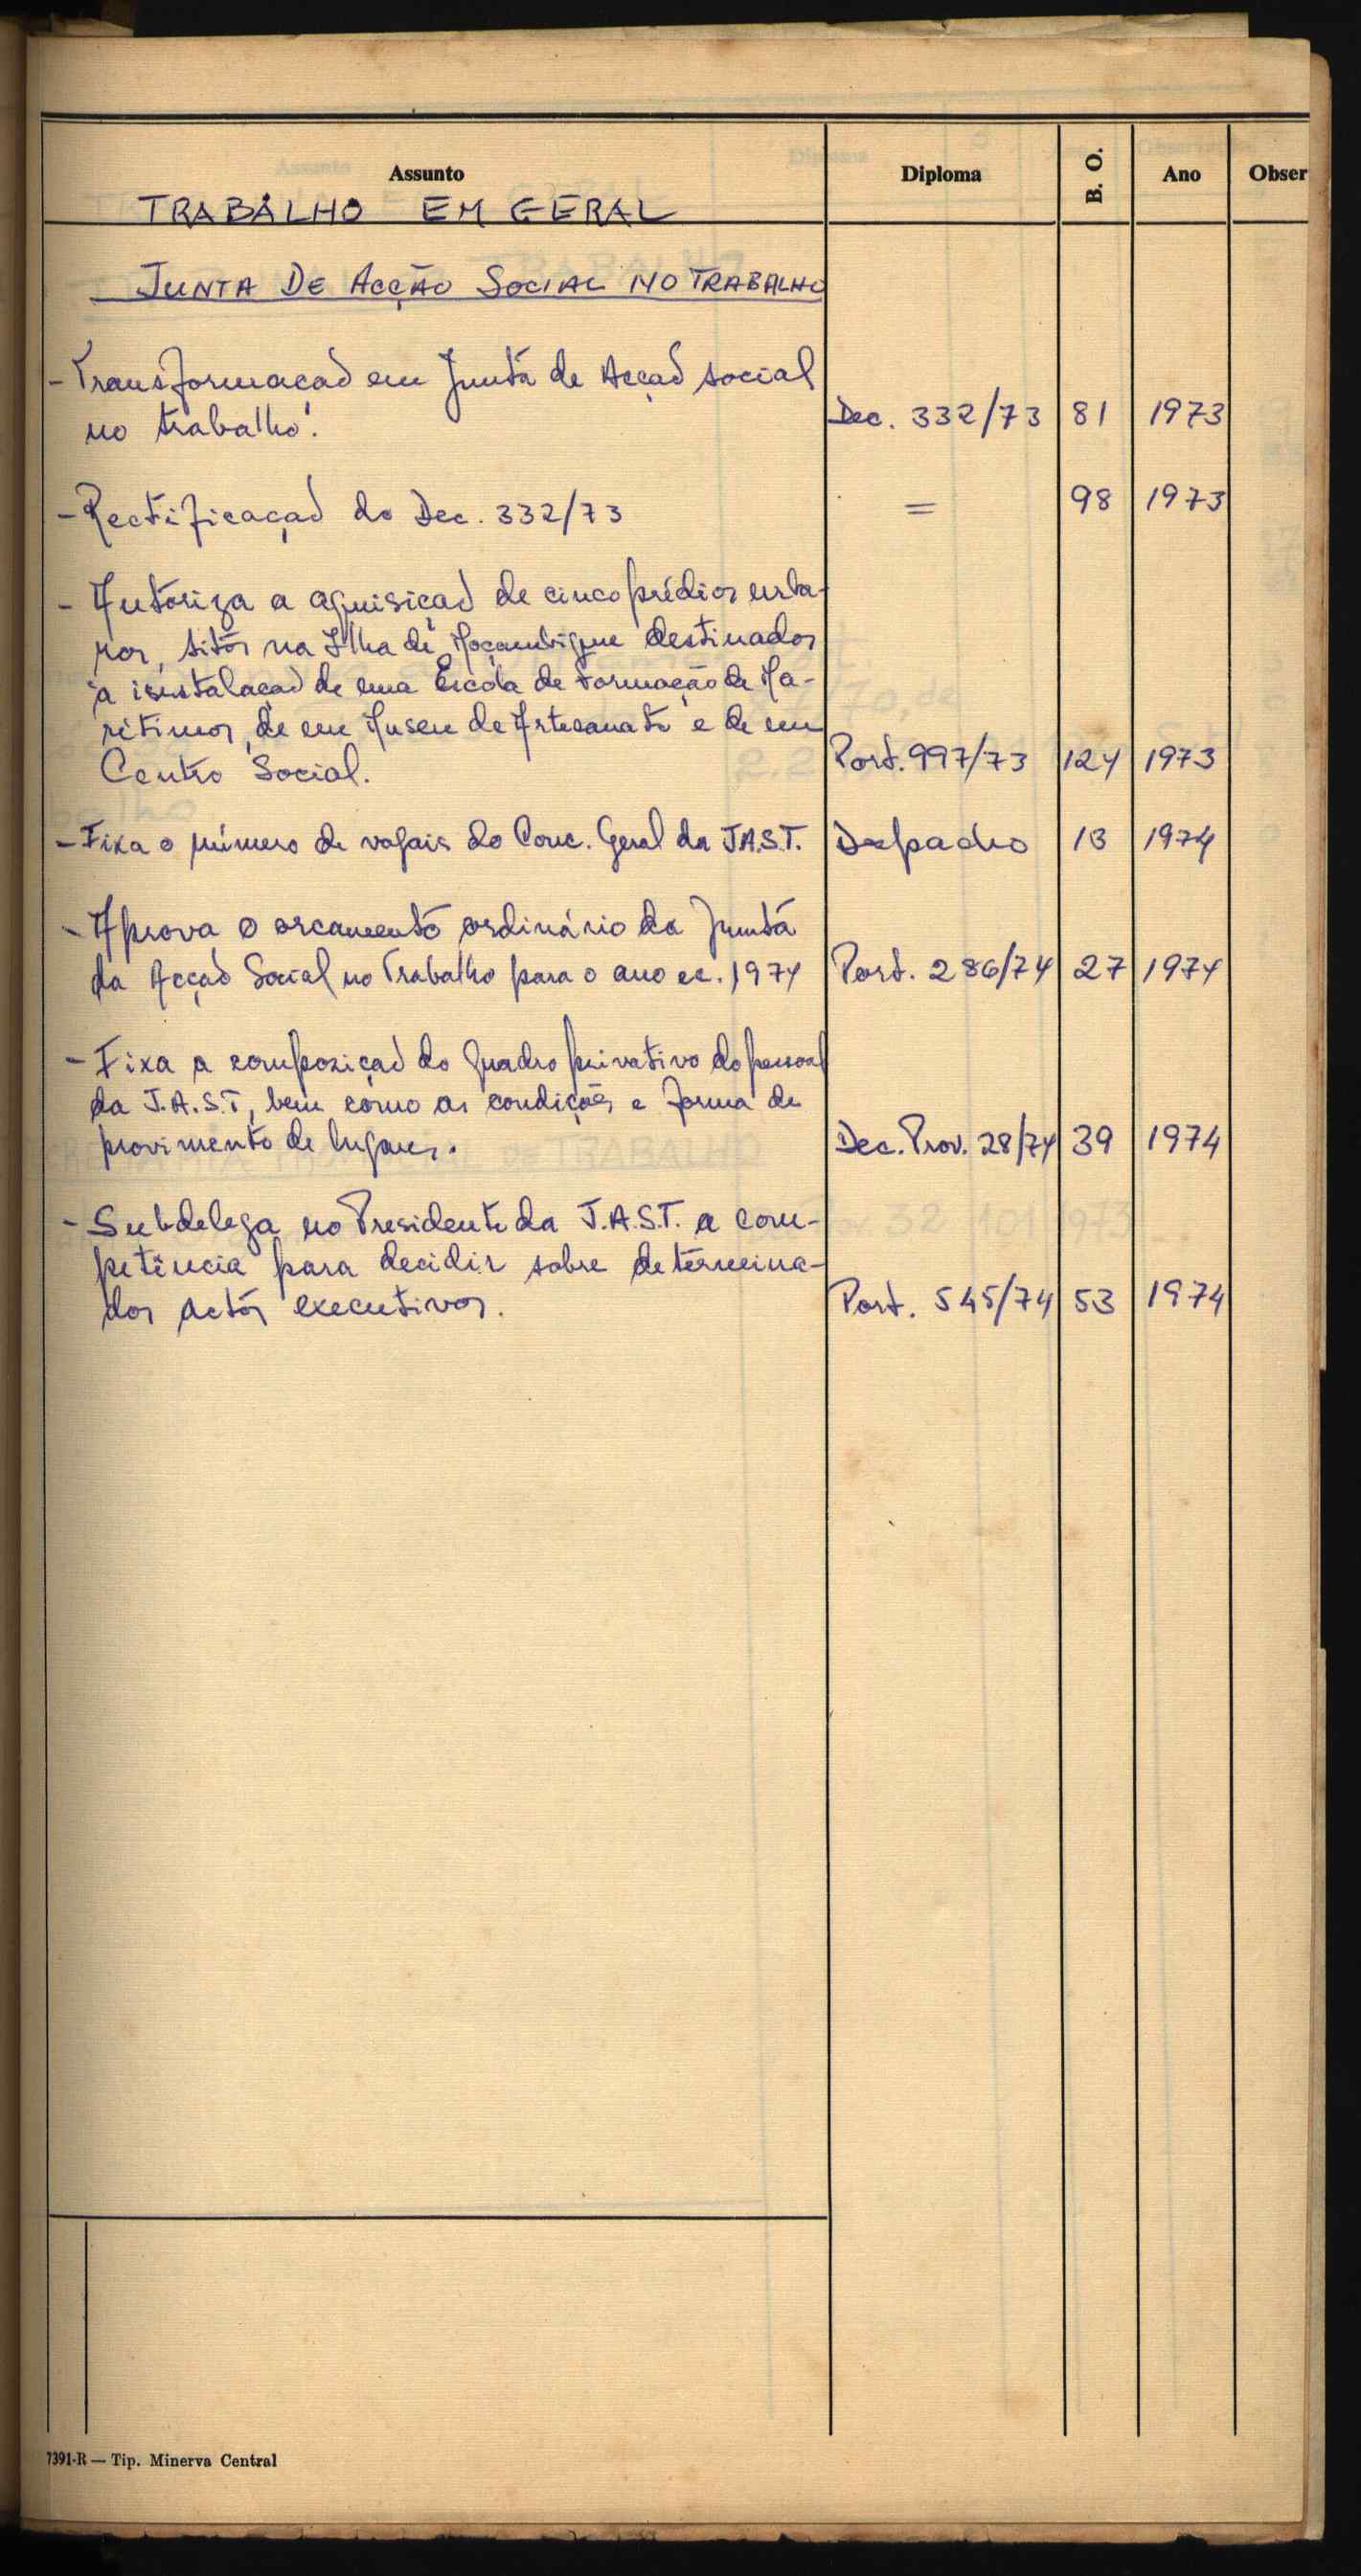 Assunto Diploma B. O. Ano Obser
TRABALHO EM GERAL
JUNTA DE ACÇÃO SOCIAL NO TRABALHO
- Transformação em Junta de Acção social
no trabalho. Dec. 332/73 81 1973
- Rectificação do Dec. 332/73 = 98 1973
- Autoriza a aquisição de cinco prédios urba-
nos, sitos na Ilha de Moçambique destinados
à instalação de uma Escola de Formação de Ma-
rítimos, de um Museu de Artesanato e de um
Centro Social. Port. 997/73 124 1973
- Fixa o número de vogais do Conc. Geral da J.A.S.T. Despacho 13 1974
- Aprova o orçamento ordinário da Junta
da Acção Social no Trabalho para o ano ec. 1974 Port. 286/74 27 1974
- Fixa a composição do Quadro privativo do pessoal
da J.A.S.T, bem como as condições e forma de
provimento de lugares. Dec. Prov. 28/74 39 1974
- Subdelega no Presidente da J.A.S.T. a com-
petência para decidir sobre determina-
dos actos executivos. Port. 545/74 53 1974
7391-R — Tip. Minerva Central